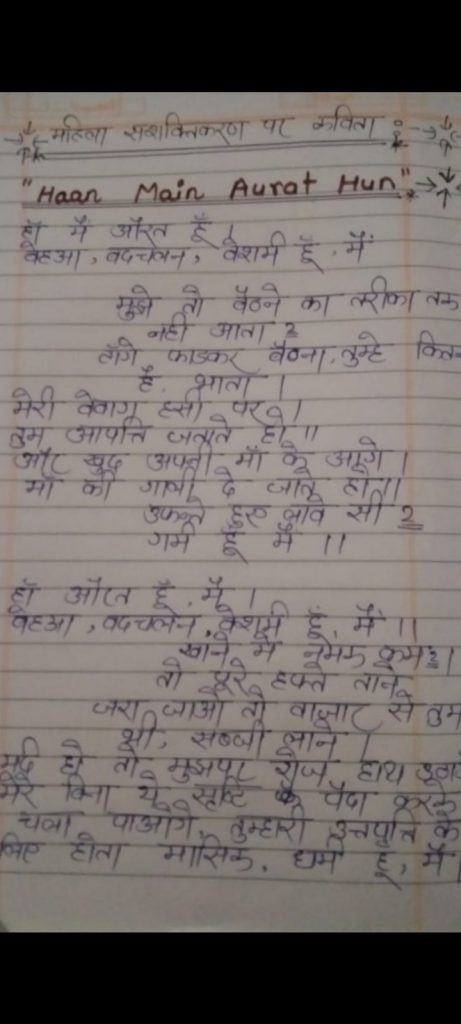 महिला सशक्तिकरण पर कविता
"Haan Main Aurat Hun"
हाँ मैं औरत हूँ ।
वेहआ, वदचलन, वेशर्म हूँ, मैं
मुझे तो वैठने का तरीका तक
नही आता ?
टाँगे फाडकर वैठना, तुम्हे कितना
है, भाता ।
मेरी वेवाग हसी पर ।
तुम आपत्ति जताते हो ॥
और खुद अपनी माँ के आगे ।
माँ की गाली दे जाते हो ॥
उफनते हुए लावे सी ?
गर्म हूँ मैं ॥
हाँ औरत हूँ, मैं ।
वेहआ, वदचलन, वेशर्म हूँ, मैं ॥
खाने में नमक कम ?।
तो पूरे हफ्ते ताने
जरा जाओ तो वाजार से तुम
भी, सब्जी लाने ।
मर्द हो तो मुझपर रोज हाथ
मेरे विना ये सृष्टि पैदा करके
चला पाओगे, तुम्हारी उत्तपत्ति के
लिए होता मासिक, धर्म हूँ, मैं ।